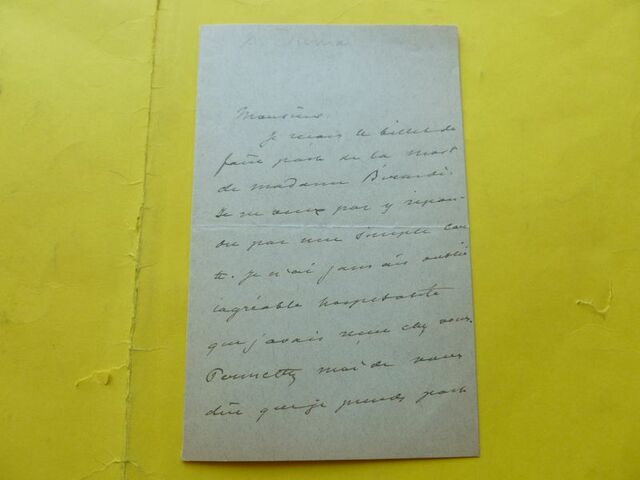 Monsieur
Je reçois le billet de
faire part de la mort
de madame Bérardi.
Je ne veux pas y repon-
dre par une simple car-
te. Je n'ai jamais oublié
l'agréable hospitalité
que j'avais reçue chez vous.
Permettez moi de vous
dire que je prends part